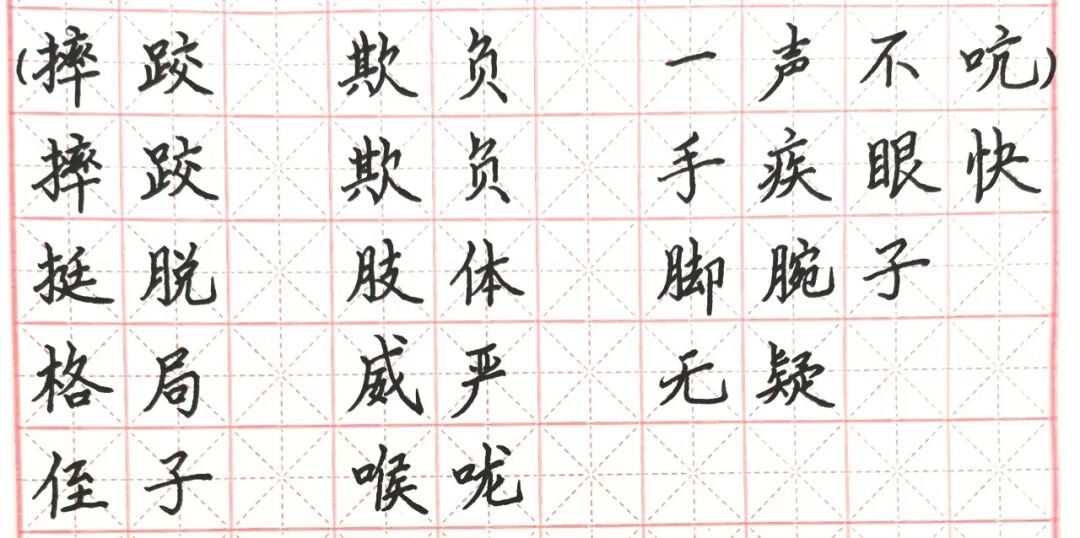 (摔跤 欺负 一声不吭)
摔跤 欺负 手疾眼快
挺脱 肢体 脚腕子
格局 威严 无疑
侄子 喉咙